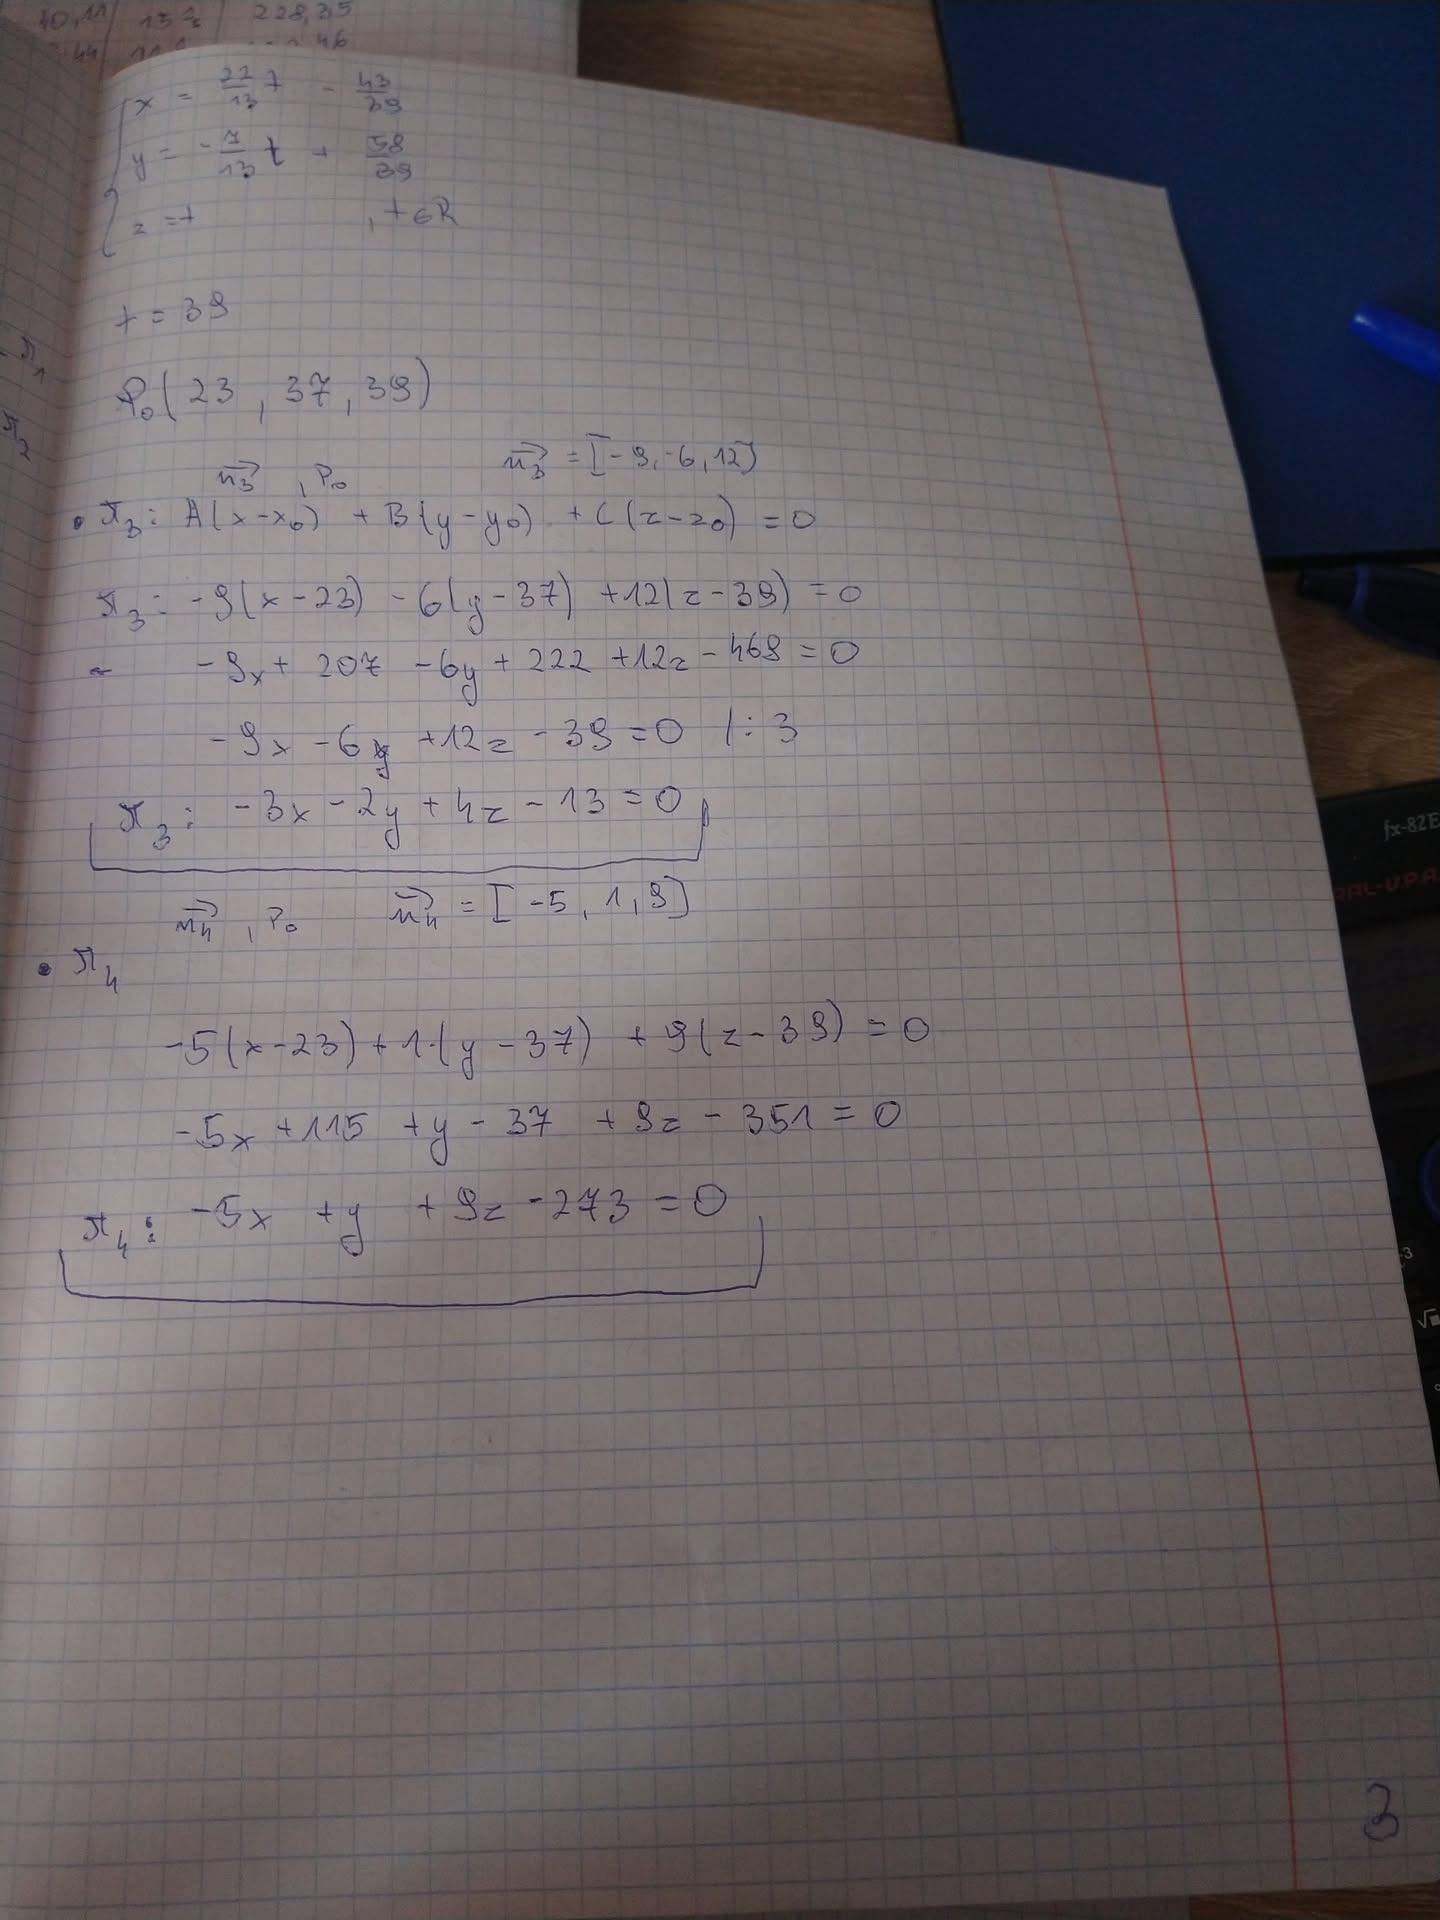 40,11 13 228,35
44 46
x = 22/13 t - 43/39
y = -7/13 t + 58/39
z = t , t ∈ R
t = 39
π1
P0(23, 37, 39)
π2
n3, P0 n3 = [-9, -6, 12]
• π3: A(x-x0) + B(y-y0) + C(z-z0) = 0
π3: -9(x-23) - 6(y-37) + 12(z-39) = 0
-9x + 207 - 6y + 222 + 12z - 468 = 0
-9x - 6y + 12z - 39 = 0 /: 3
π3: -3x - 2y + 4z - 13 = 0
n4, P0 n4 = [-5, 1, 9]
• π4
-5(x-23) + 1·(y-37) + 9(z-39) = 0
-5x + 115 + y - 37 + 9z - 351 = 0
π4: -5x + y + 9z - 273 = 0
3
fx-82E
PAL-V.P.A.